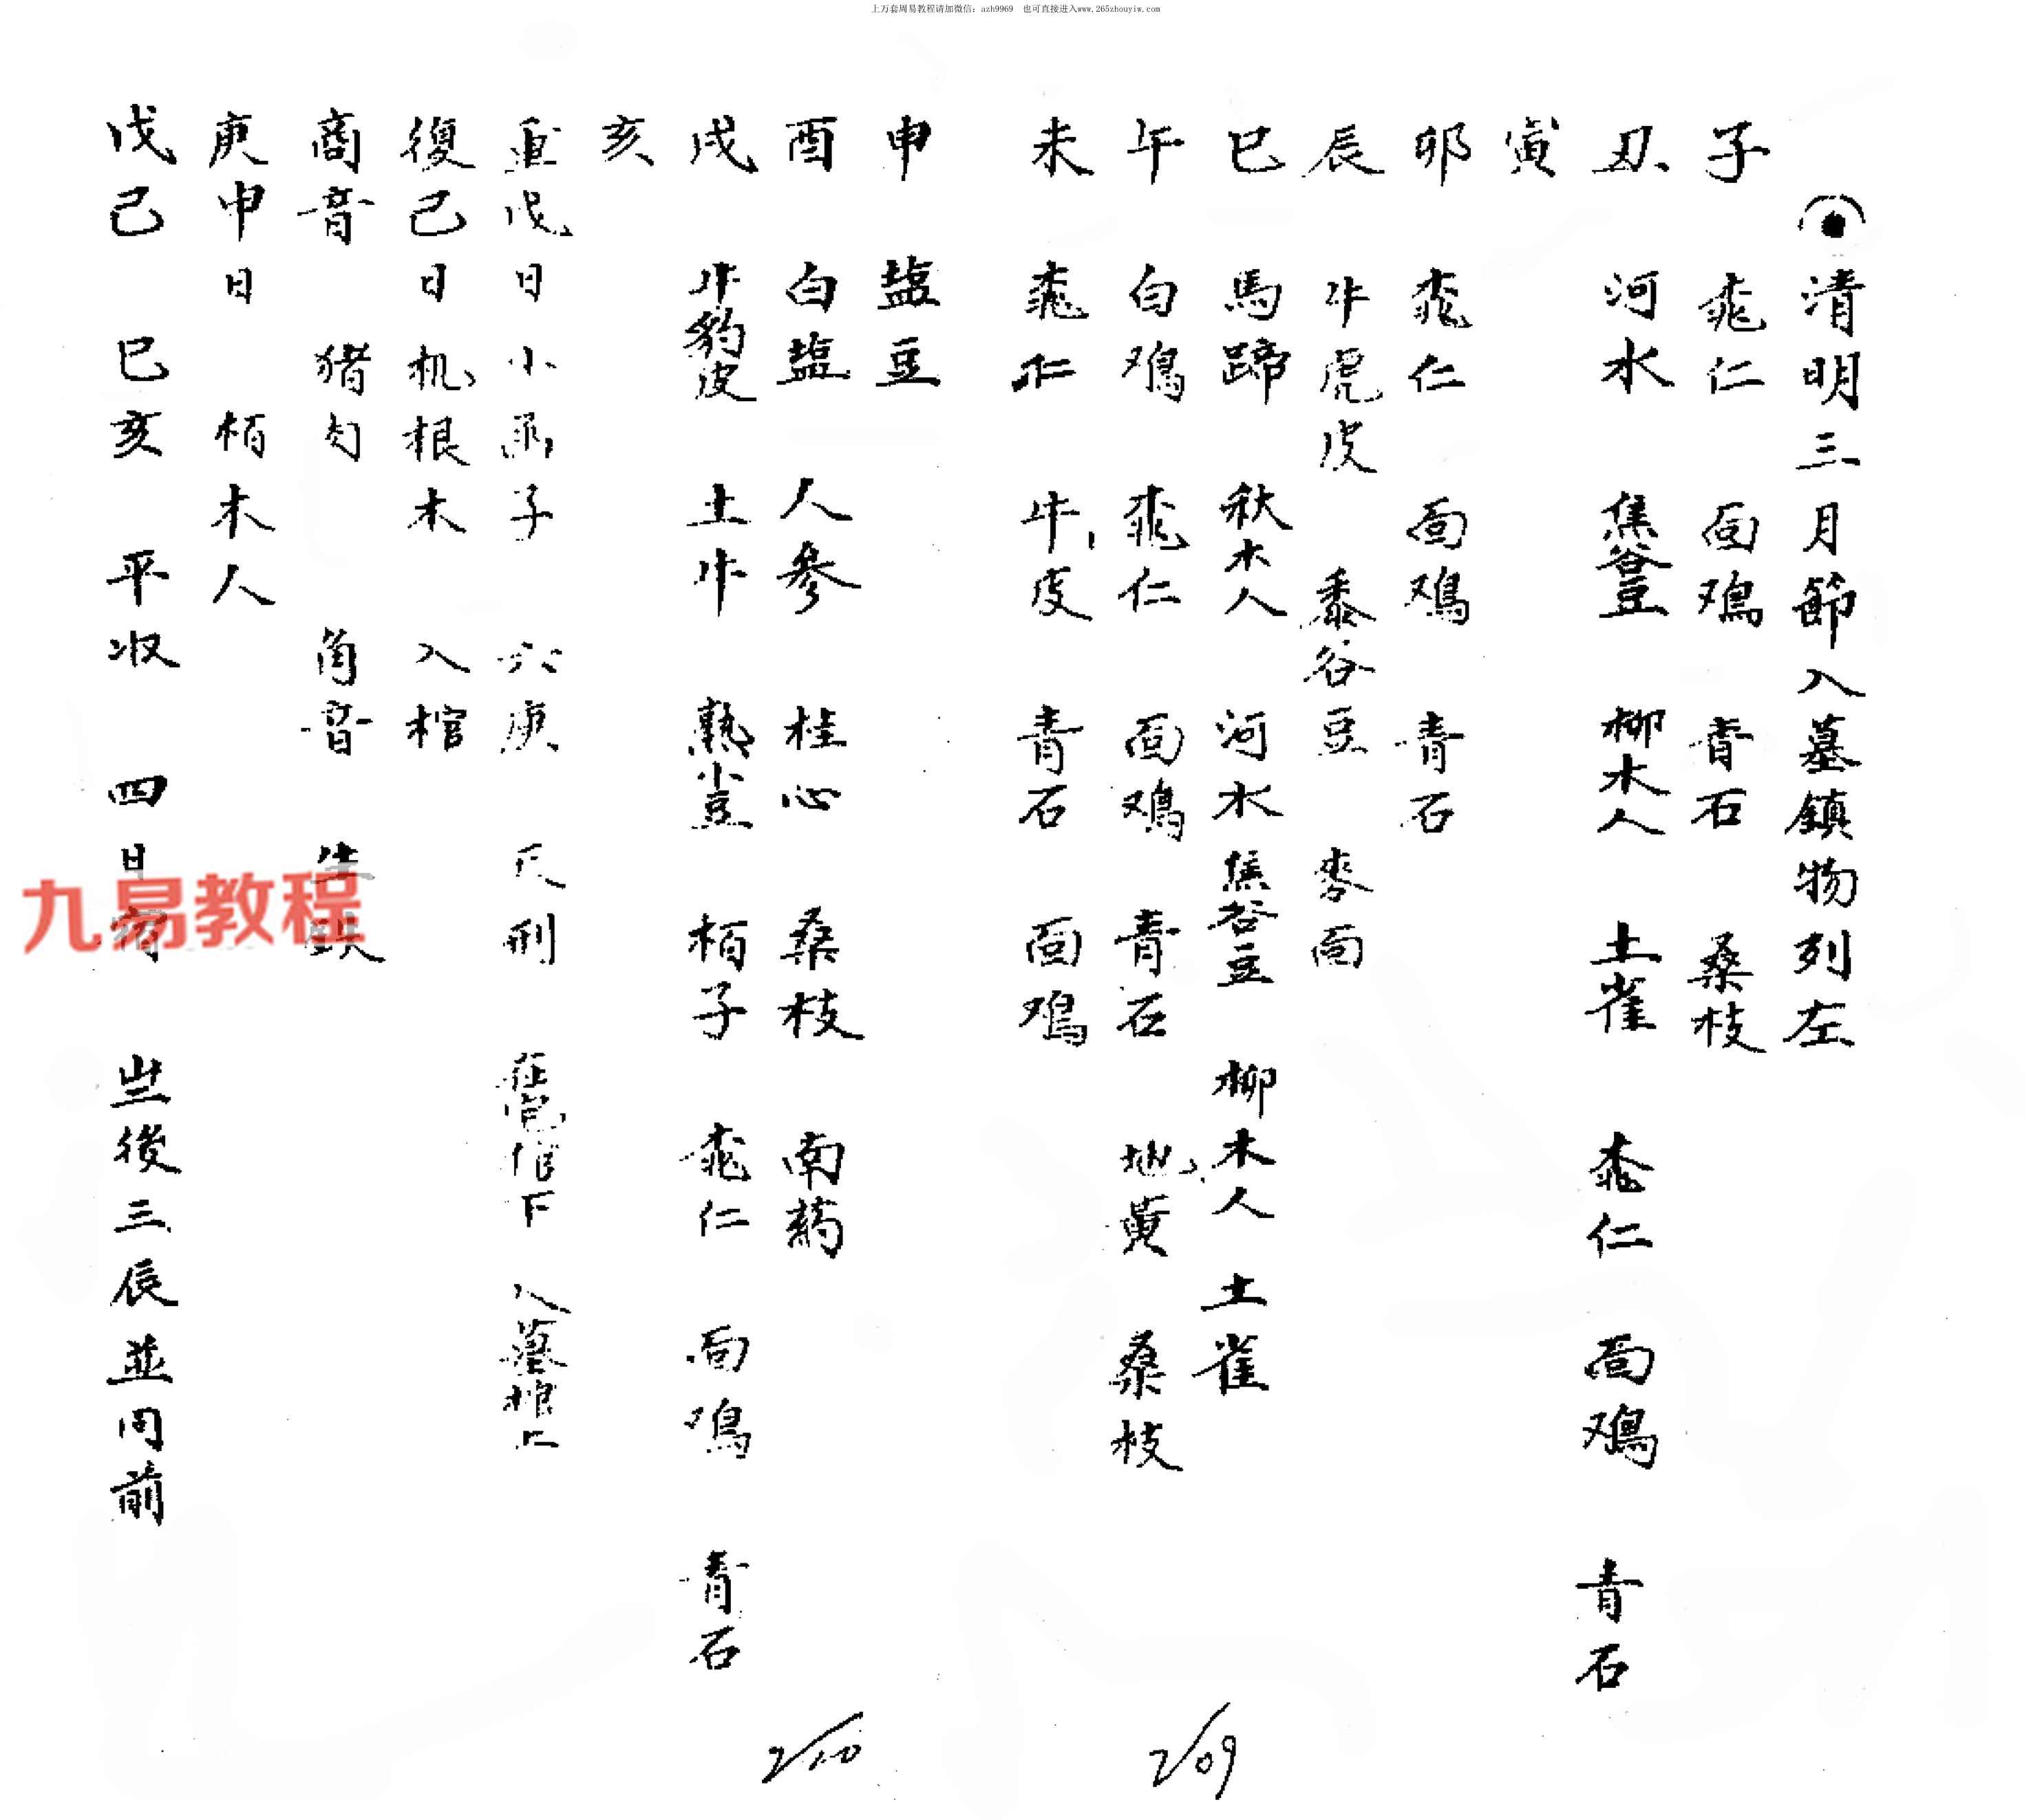 上万套周易教程请加微信：azh9969 也可直接进入www.265zhouyiw.com
清明三月節入墓鎮物列左
子 桃仁 面鸡 青石 桑枝
丑 河水 焦谷豆 柳木人 土雀 桃仁 面鸡 青石
寅
卯 桃仁 面鸡 青石
辰 牛虎皮 黍谷豆 麥面
巳 馬蹄 秋木人 河水 焦谷豆 柳木人 土雀
午 白鸡 桃仁 面鸡 青石 地黄 桑枝
未 桃仁 牛皮 青石 面鸡
申 盐豆
酉 白盐 人參 桂心 桑枝 南药
戌 牛豹皮 土牛 熟小豆 柏子 桃仁 面鸡 青石
亥
重戊日 小函子 六庚 天刑 在宅棺下 入墓棺上
復己日 机根木 入棺
商音 猪肉 角音 生鉄
庚申日 柏木人
戊己 巳亥 平收 四日宿 後三辰並同前
九易教程
2/10
2/09